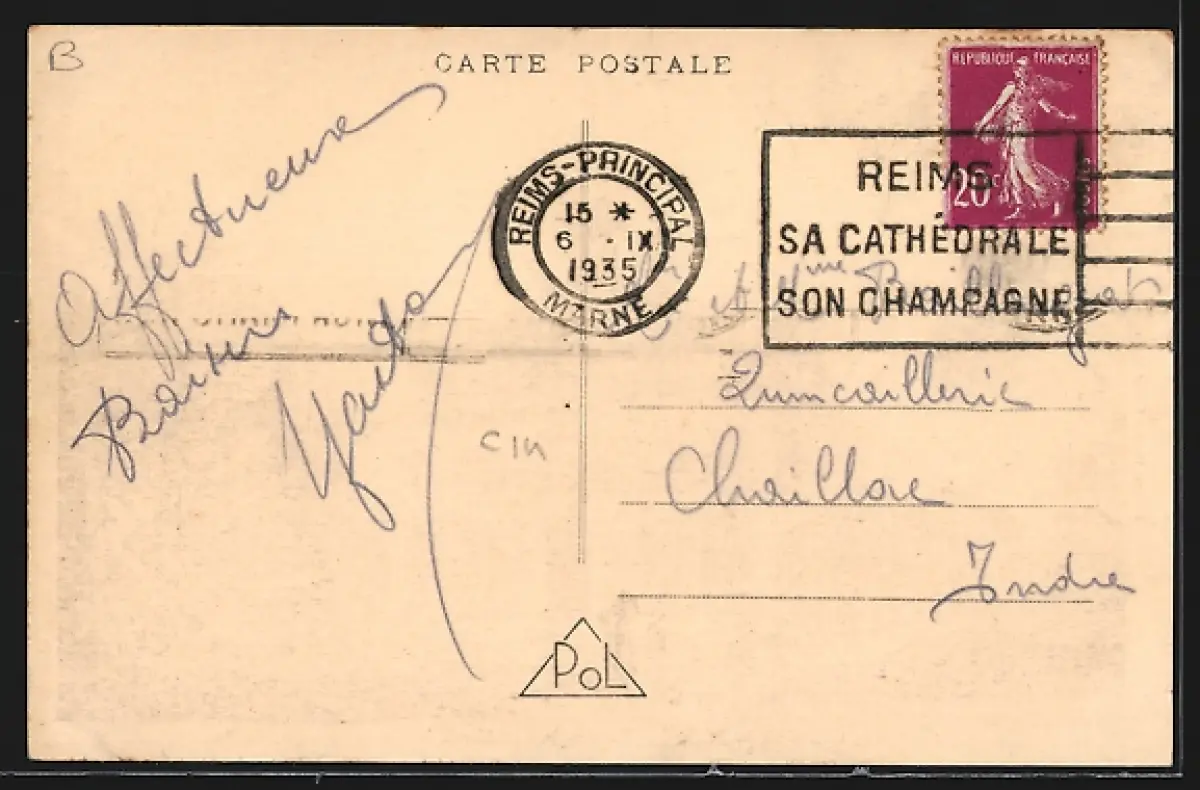 B
CARTE POSTALE
REPUBLIQUE FRANÇAISE
20c
REIMS-PRINCIPAL
15 *
6 · IX
1935
MARNE
REIMS
SA CATHÉDRALE
SON CHAMPAGNE
Affectueux
Baisers
Mme
Quincaillerie
Chaillac
Indre
CIN
PoL